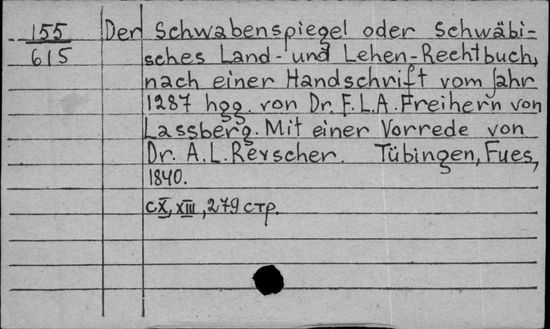 155 Der Schwabenspiegel oder Schwäbi-
615 sches Land- und Lehen-Rechtbuch,
nach einer Handschrift vom Jahr
1287 hgg. von Dr. F.L.A. Freihern von
Lassberg. Mit einer Vorrede von
Dr. A.L. Reyscher. Tübingen, Fues,
1840.
CX, XIII, 279 стр.